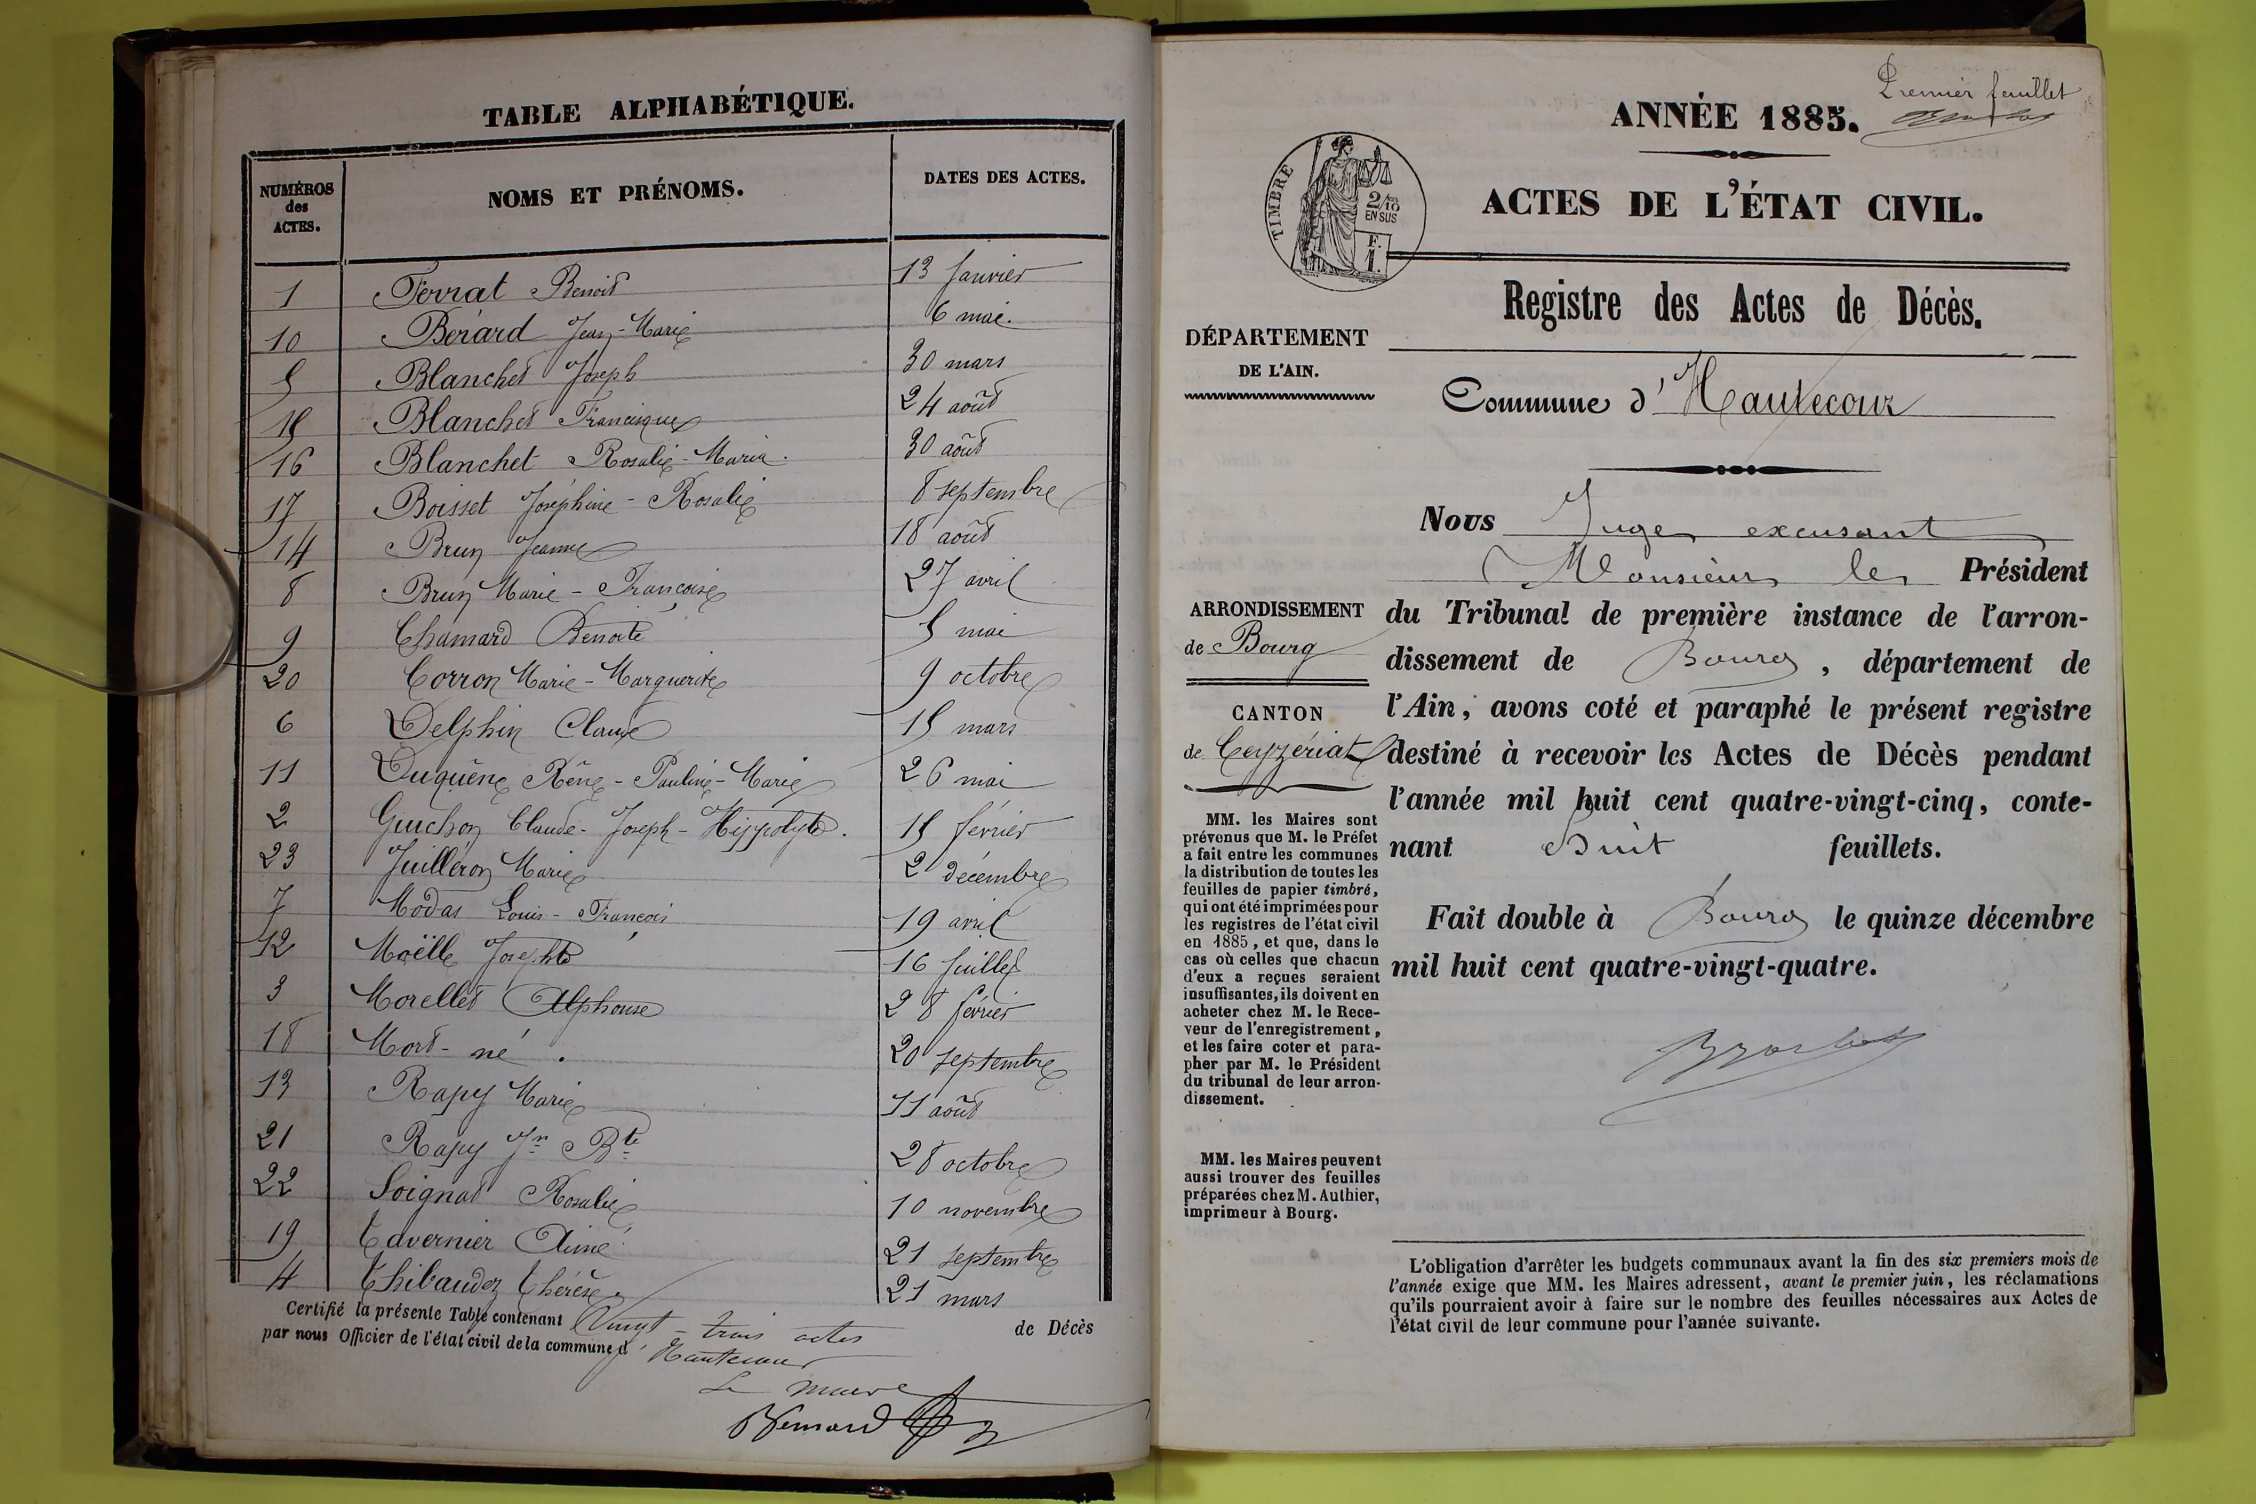 TABLE ALPHABÉTIQUE.
NUMÉROS des ACTES. NOMS ET PRÉNOMS. DATES DES ACTES.
1 Ferrat Benoit 13 Janvier
10 Bérard Jean-Marie 6 mai.
5 Blanchet Joseph 30 mars
15 Blanchet Francisque 24 août
16 Blanchet Rosalie-Maria. 30 août
17 Boisset Joséphine-Rosalie 8 septembre
14 Brun Jeanne 18 août
8 Brun Marie-Françoise 27 avril
9 Chamard Benoite 5 mai
20 Corron Marie-Marguerite 9 octobre
6 Delphin Claude 15 mars
11 Duquêne Rêne-Pauline-Marie 26 mai
2 Guichon Claude-Joseph-Hippolyte. 15 février
23 Juilléron Marie 2 décembre
7 Modas Louis-François 19 avril
12 Moëlle Josephte 16 juillet
3 Morellet Alphonse 28 février
18 Mort-né. 20 septembre
13 Rapy Marie 11 août
21 Rapy Jn Bte 28 octobre
22 Soignat Rosalie 10 novembre
19 Tavernier Aimé 21 septembre
4 Thibaudez Thérèse. 21 mars
Certifié la présente Table contenant Vingt-trois actes de Décès
par nous Officier de l'état civil de la commune d'Hautecour
Le maire
Bernard
Premier feuillet
ANNÉE 1885.
TIMBRE
2/10
EN SUS
F.
1.
ACTES DE L'ÉTAT CIVIL.
Registre des Actes de Décès.
DÉPARTEMENT
DE L'AIN.
Commune d'Hautecour
Nous Juge excusant
Monsieur le Président
ARRONDISSEMENT
de Bourg
du Tribunal de première instance de l'arron-
dissement de Bourg, département de
l'Ain, avons coté et paraphé le présent registre
CANTON
de Ceyzériat
destiné à recevoir les Actes de Décès pendant
l'année mil huit cent quatre-vingt-cinq, conte-
nant huit feuillets.
Fait double à Bourg le quinze décembre
mil huit cent quatre-vingt-quatre.
MM. les Maires sont
prévenus que M. le Préfet
a fait entre les communes
la distribution de toutes les
feuilles de papier timbré,
qui ont été imprimées pour
les registres de l'état civil
en 1885, et que, dans le
cas où celles que chacun
d'eux a reçues seraient
insuffisantes, ils doivent en
acheter chez M. le Rece-
veur de l'enregistrement,
et les faire coter et para-
pher par M. le Président
du tribunal de leur arron-
dissement.
MM. les Maires peuvent
aussi trouver des feuilles
préparées chez M. Authier,
imprimeur à Bourg.
L'obligation d'arrêter les budgets communaux avant la fin des six premiers mois de
l'année exige que MM. les Maires adressent, avant le premier juin, les réclamations
qu'ils pourraient avoir à faire sur le nombre des feuilles nécessaires aux Actes de
l'état civil de leur commune pour l'année suivante.